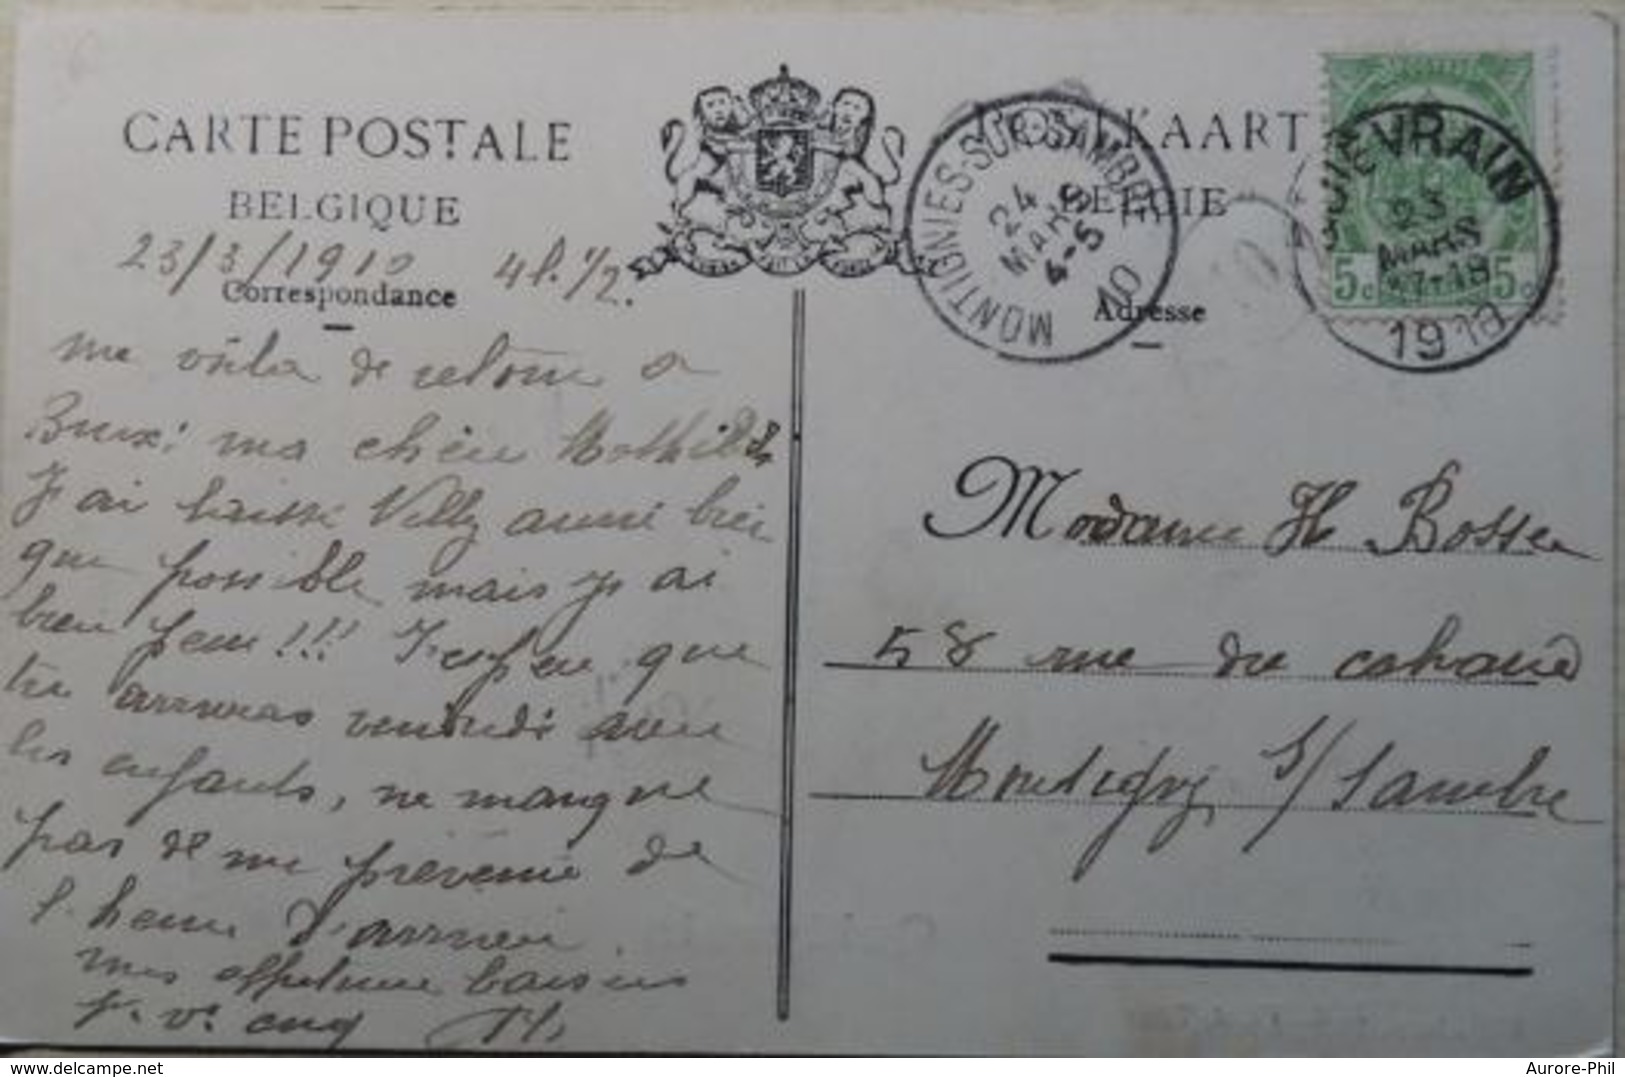 CARTE POSTALE
POSTKAART
BELGIQUE
BELGIE
23/3/1910 4h. 1/2.
Correspondance
Adresse
MONTIGNES-SUR-SAMBRE
24
MARS
4-5
10
QUIEVRAIN
23
MARS
17-18
1910
5c 5c
me voila de retour a
Brux: ma chère Mathilde
J'ai laissé Villy aussi bien
que possible mais j'ai
bien peur!!! J'espère que
tu arriveras vendredi avec
les enfants, ne manque
pas de me prévenir de
l'heure d'arrivée.
mes affectueux baisers
p. vs cinq
Madame H Bosser
58 rue du
Montigny s/Sambre
Aurore-Phil